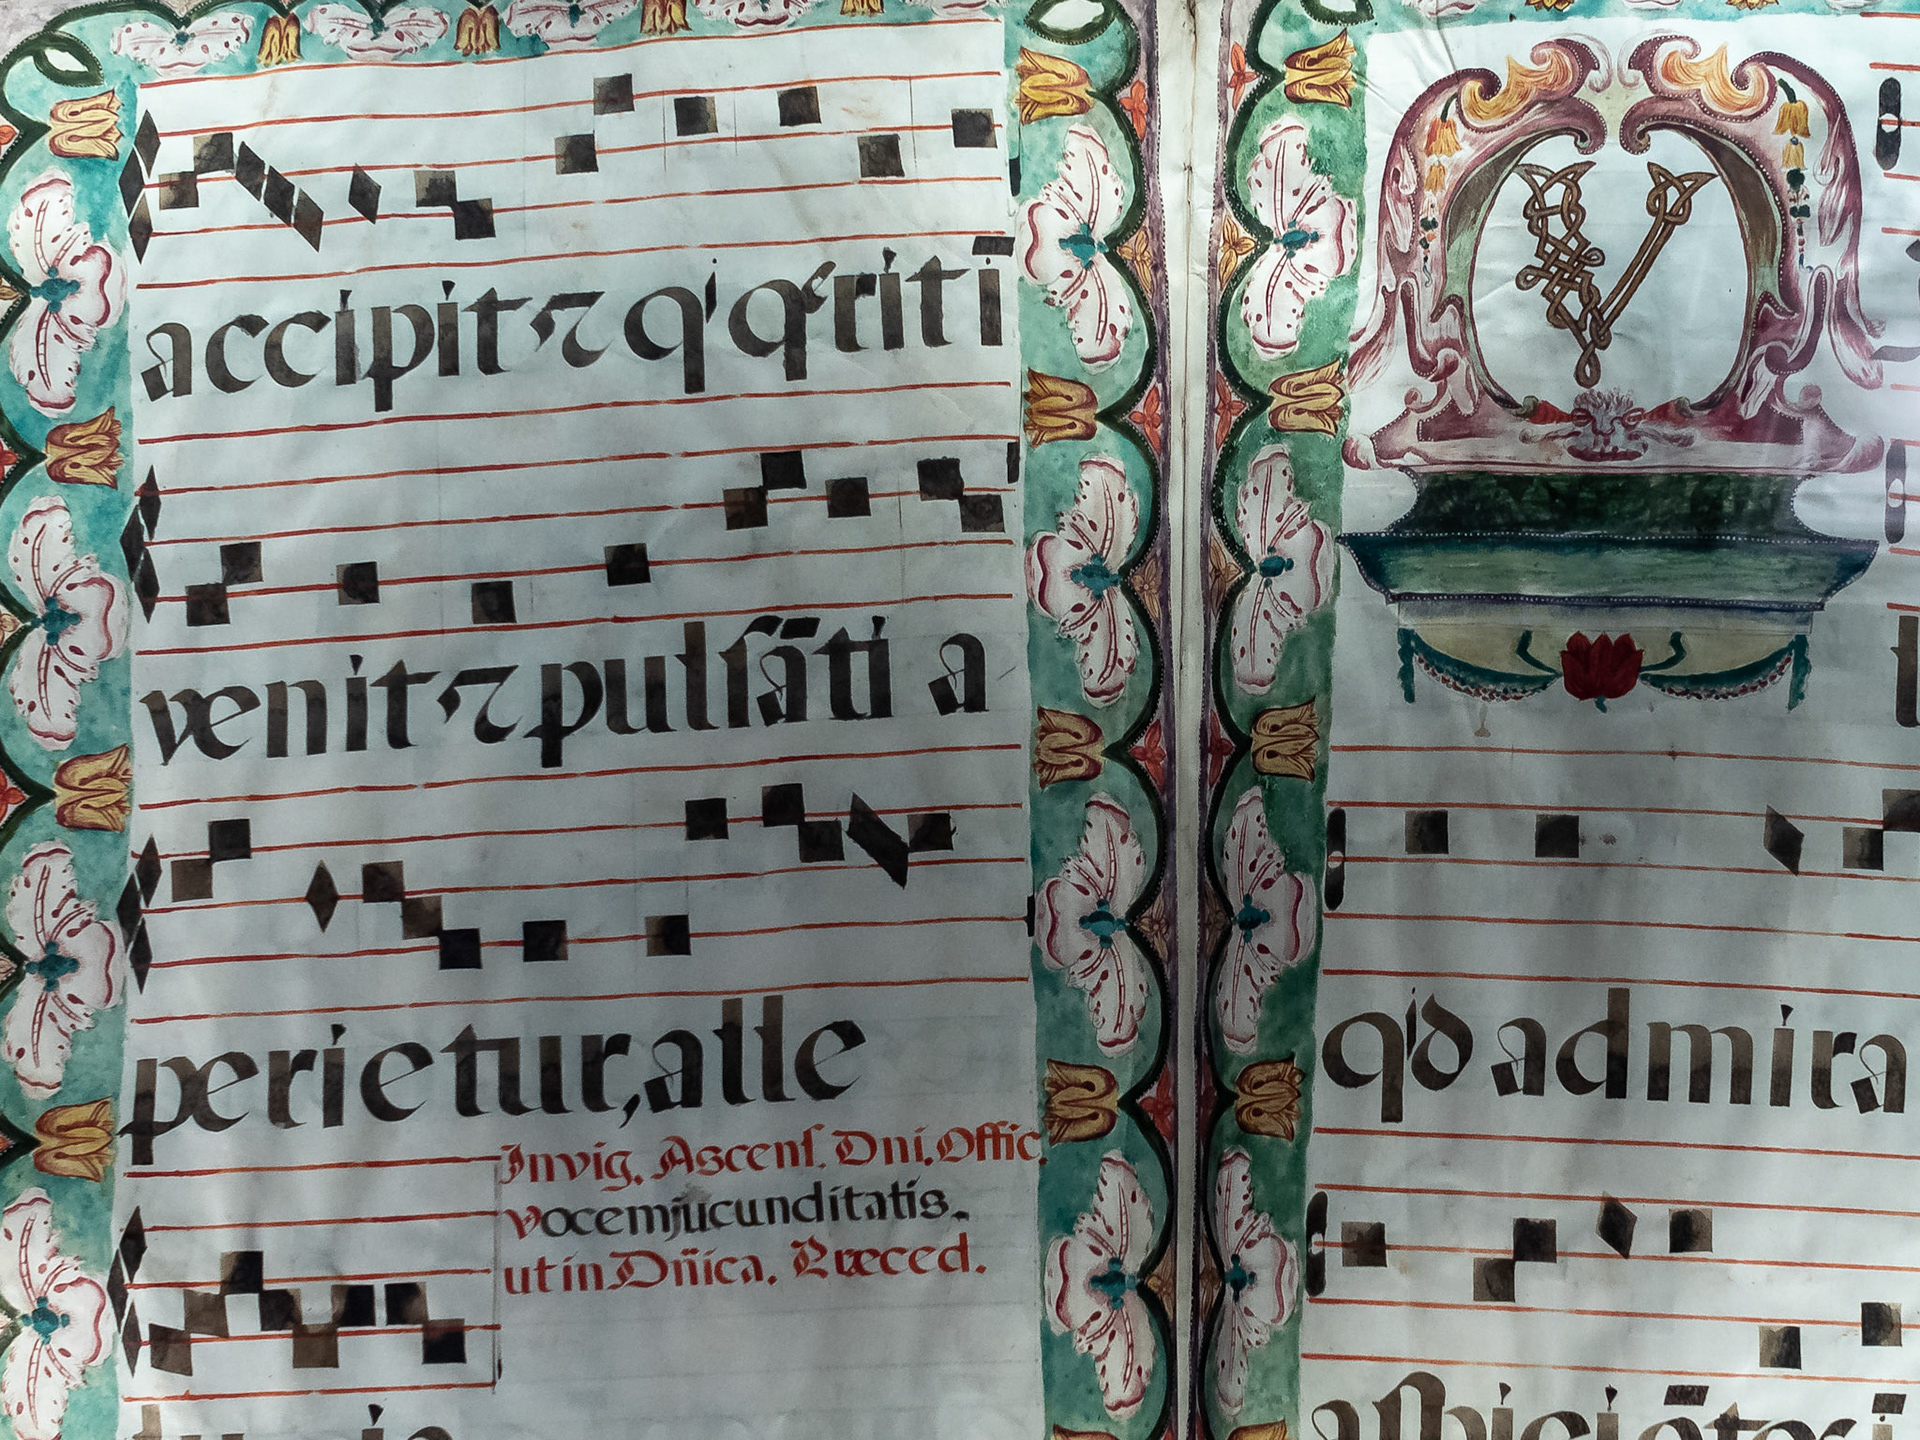 accipit ⁊ qⁱ qͤrit ī
venit ⁊ pulsāti a
perietur, alle
Invig. Ascens. Dni. Offic.
vocem jucunditatis.
ut in Dn̄ica. Præced.
luia
V
qⁱd admira